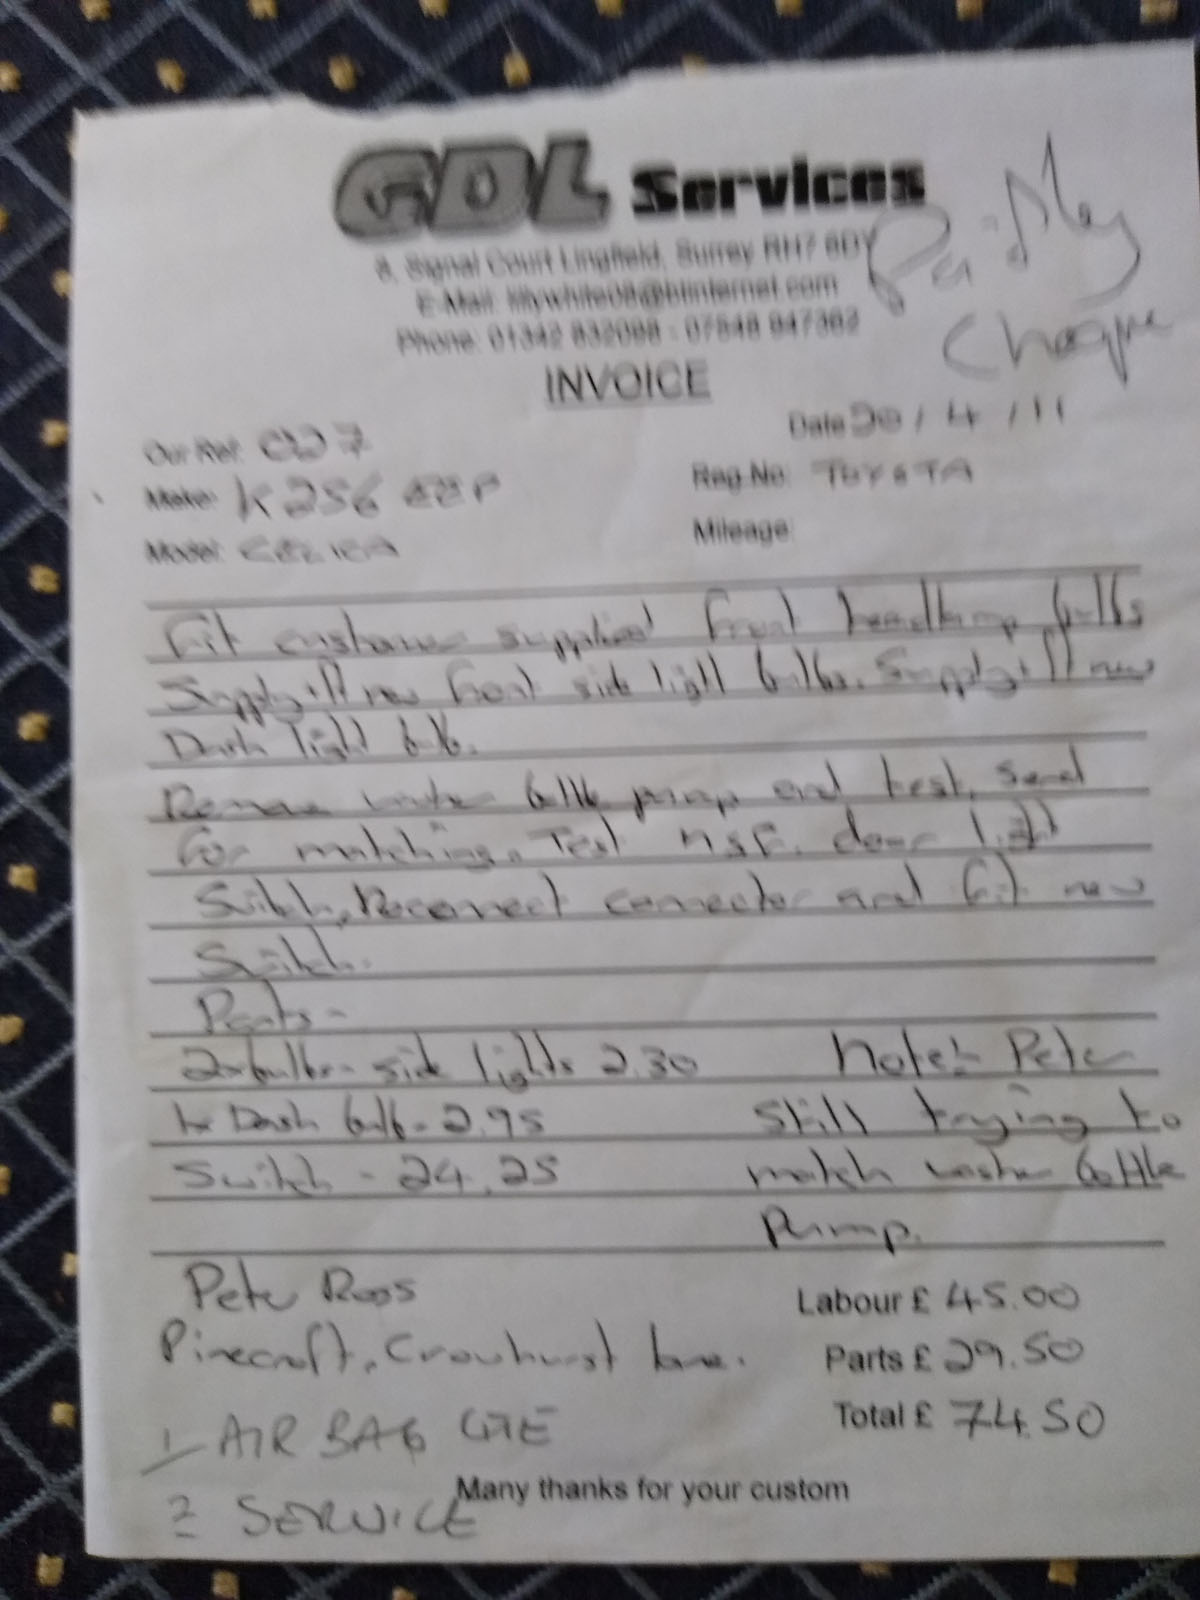 GDL Services
Paid by
Cheque
8, Signal Court Lingfield, Surrey RH7 6DY
E-Mail: lillywhite08@btinternet.com
Phone: 01342 832098 - 07848 947362
INVOICE
Date 20 / 4 / 11
Our Ref: 027
Make: K256 EEP
Reg No: TOYOTA
Model: CELICA
Mileage:
Fit customer supplied front headlamp bulbs
Supply + fit new front side light bulbs. Supply + fit new
Dash light bulb.
Remove washer bottle pump and test, send
for matching. Test N.S.F. door light
Switch, Reconnect connector and fit new
Switch.
Parts -
2x bulbs - side lights 2.30
Note:- Pete
1x Dash bulb - 2.95
Still trying to
Switch - 24.25
match washer bottle
Pump.
Pete Ross
Labour £ 45.00
Pinecroft, Crowhurst Lane.
Parts £ 29.50
Total £ 74.50
1 AIR BAG LITE
Many thanks for your custom
2 SERVICE